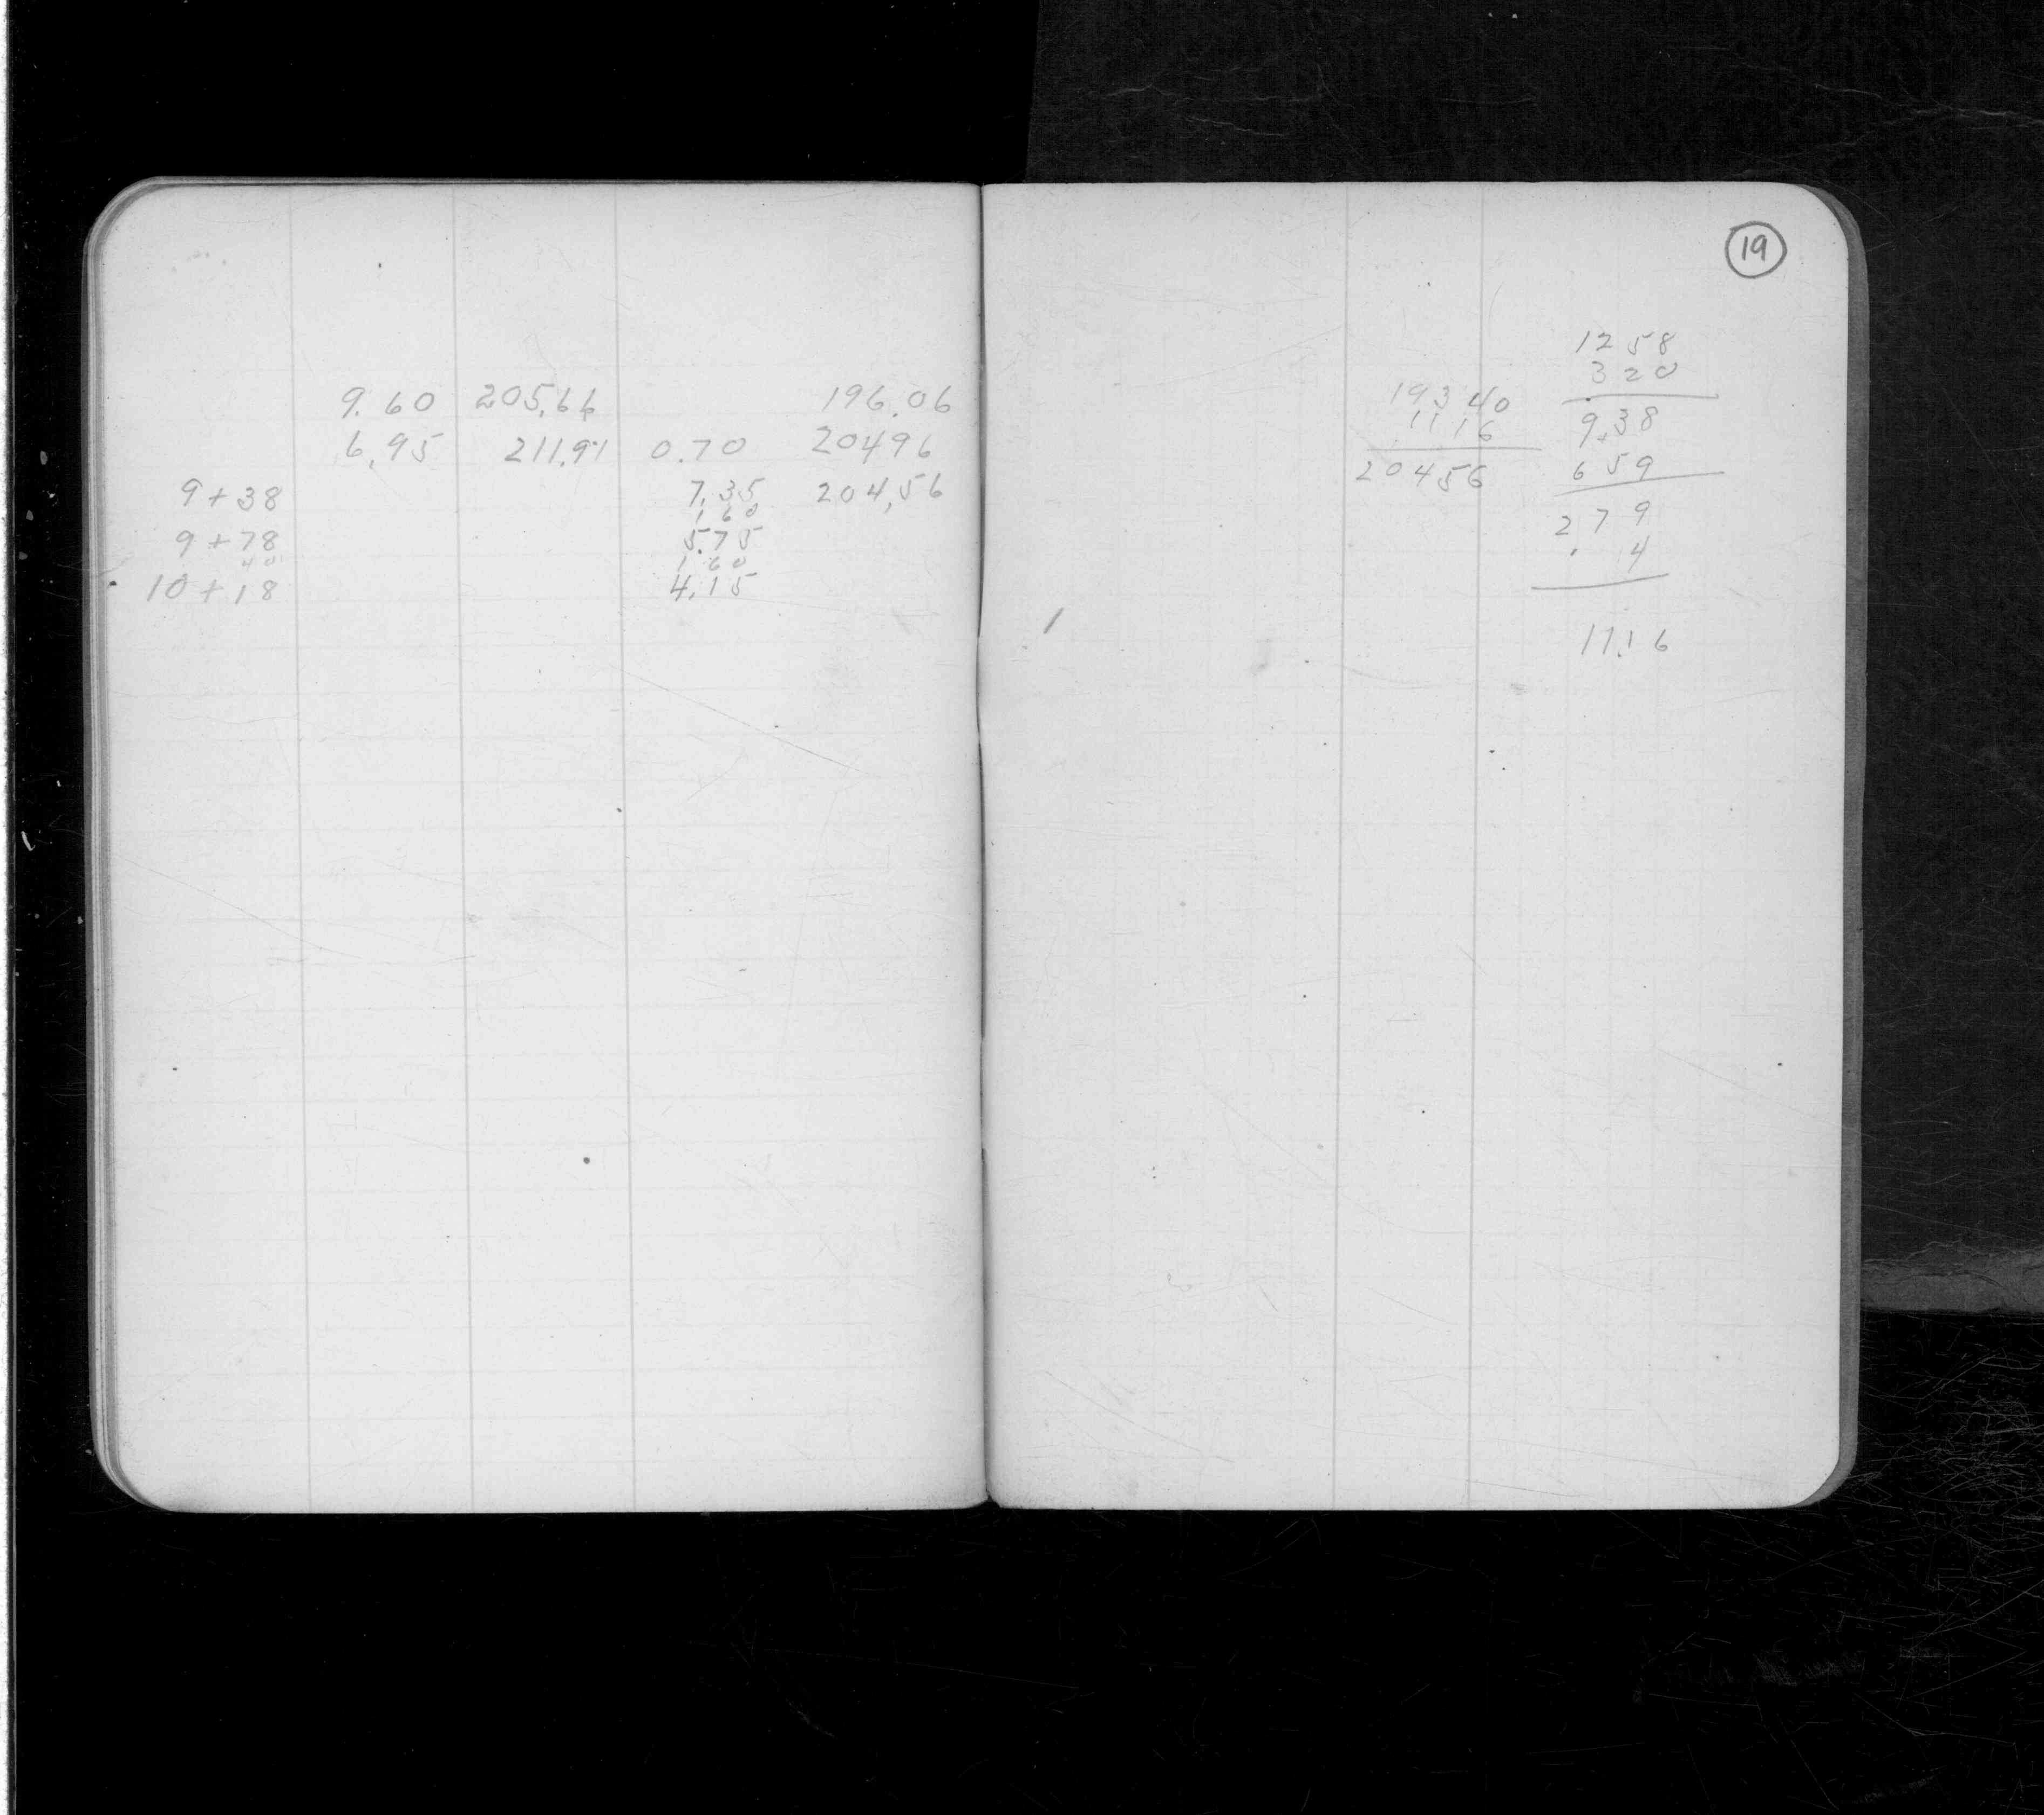 9.60 205.66 196.06
6.95 211.91 0.70 20496
9+38 7.35 204.56
1 60
9+78 5.75
40 1 60
10+18 4.15
19
1258
320
9.38
659
2 7 9
. 4
11.16
19340
1116
20456